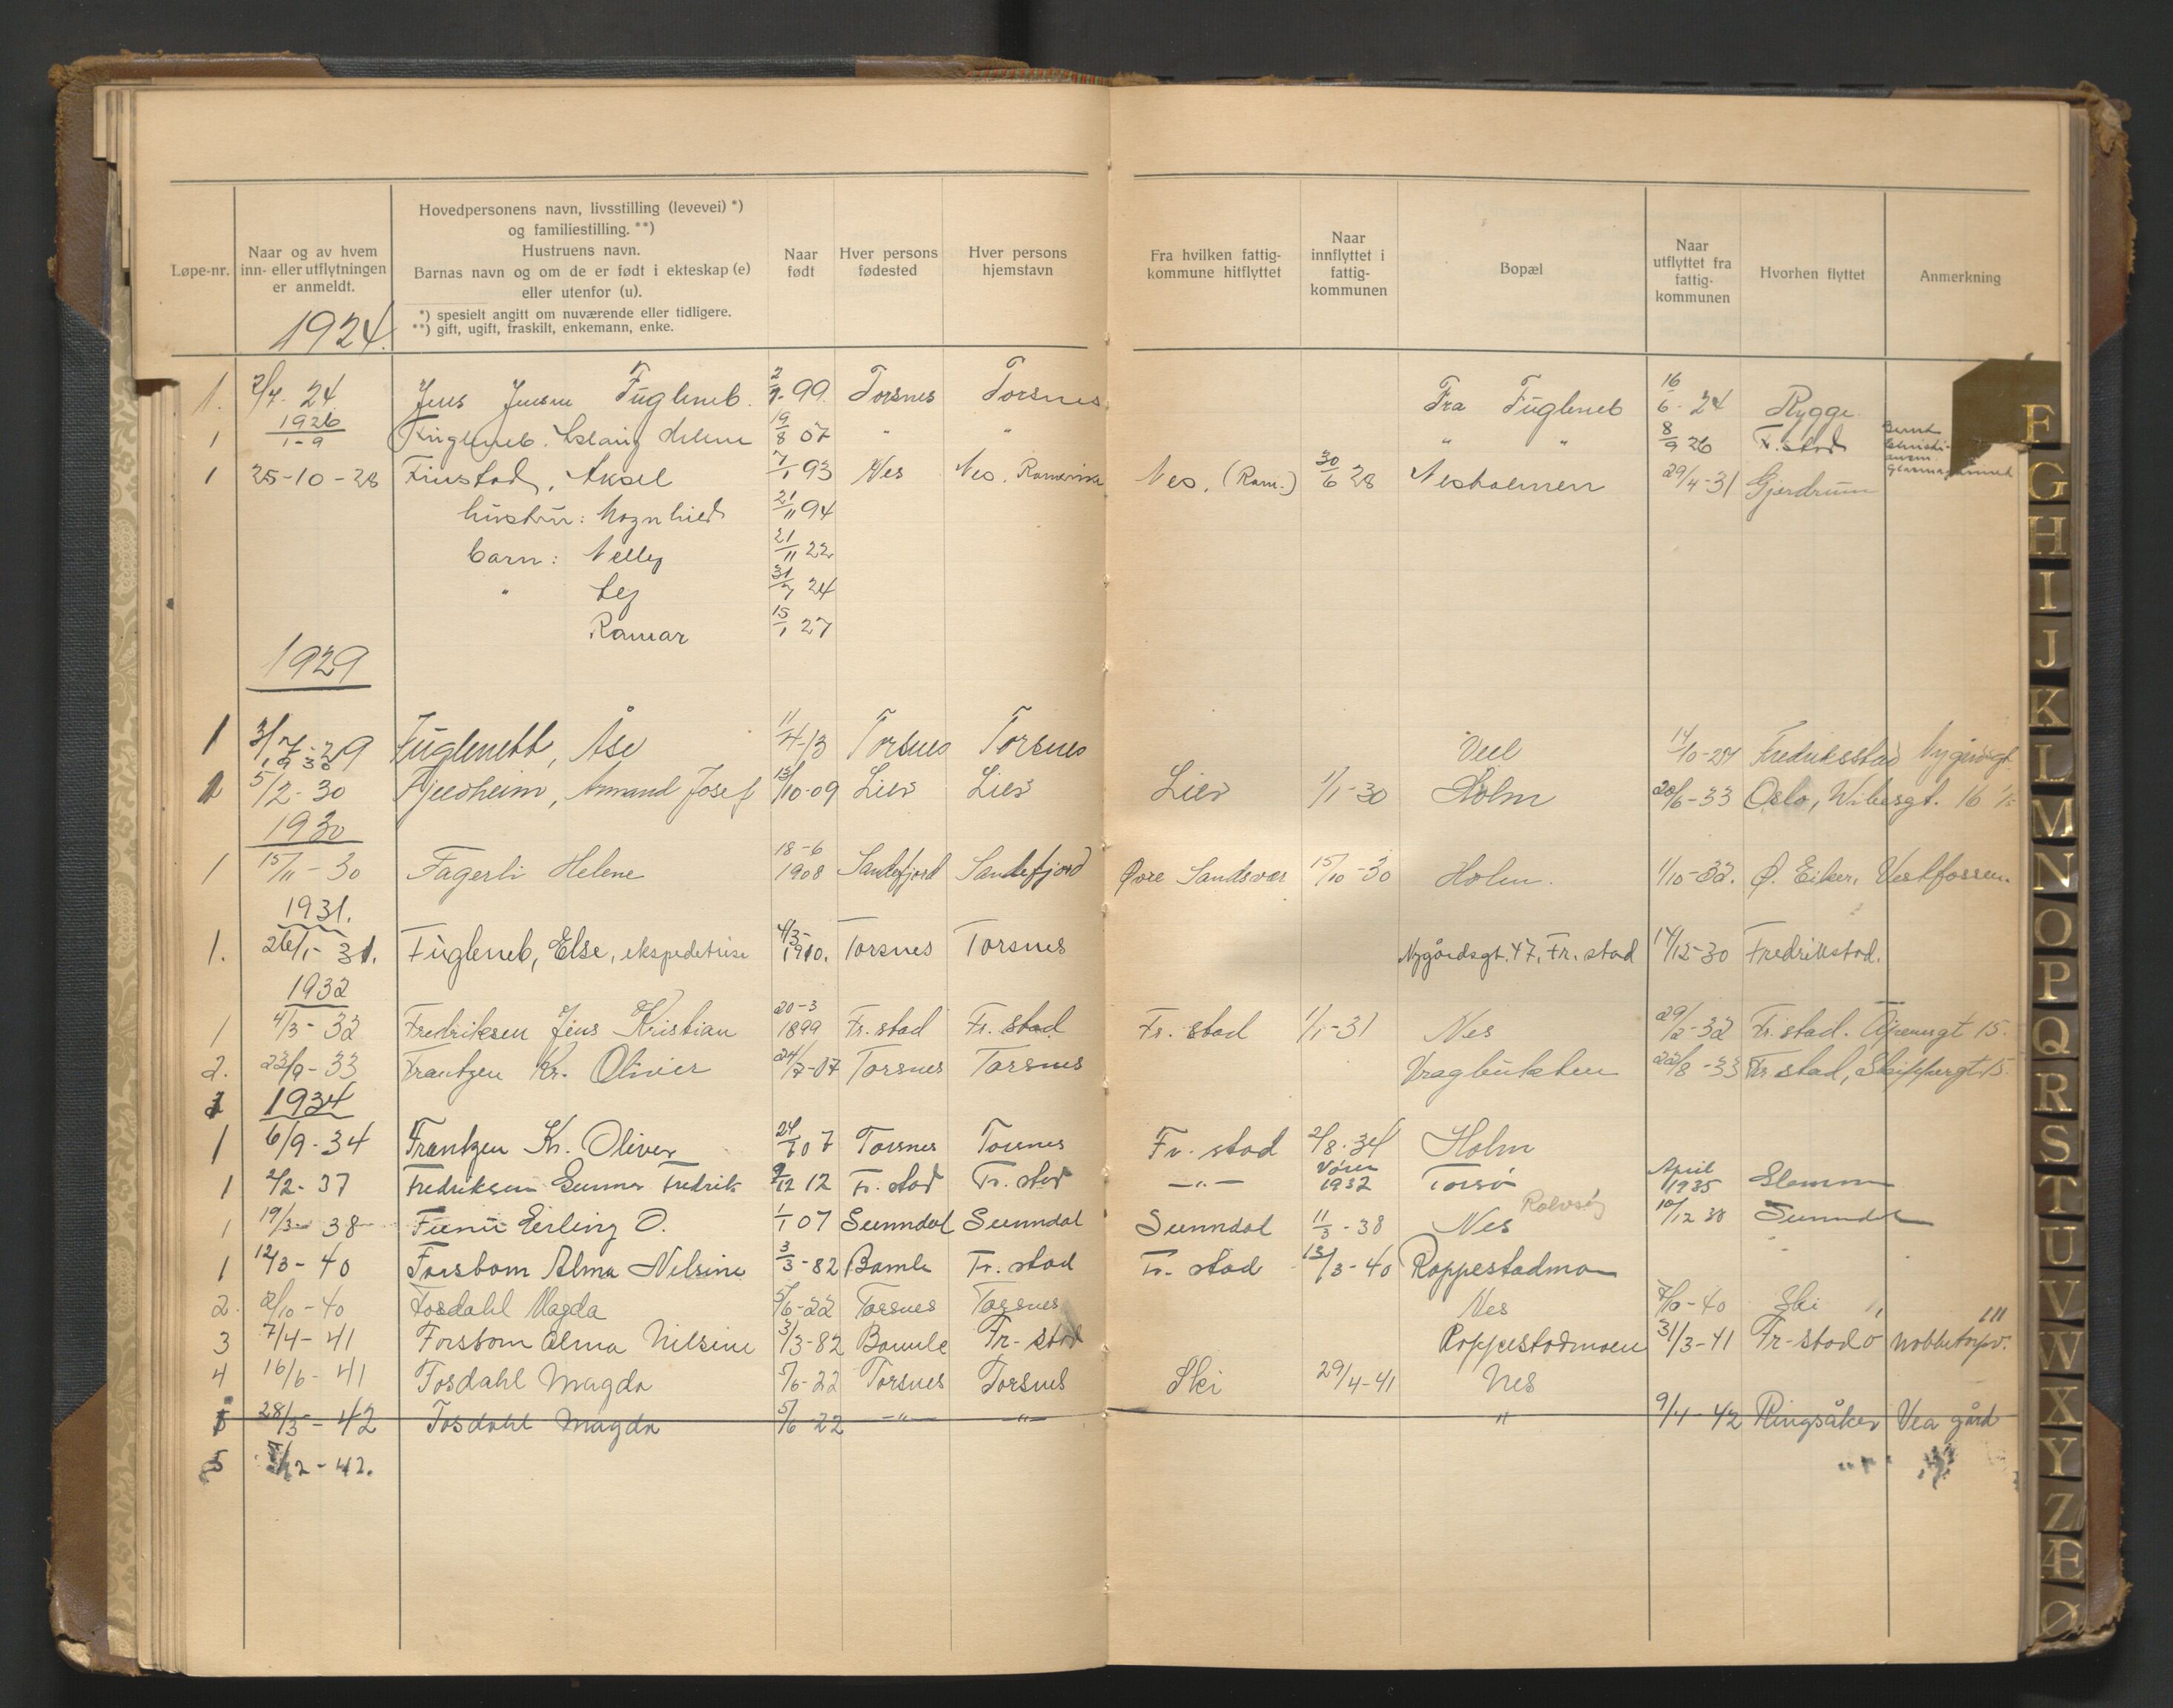 Løpe-nr.
Naar og av hvem inn- eller utflytningen er anmeldt.
Hovedpersonens navn, livsstilling (levevei) *)
og familiestilling. **)
Hustruens navn.
Barnas navn og om de er født i ekteskap (e)
eller utenfor (u).
*) spesielt angitt om nuværende eller tidligere.
**) gift, ugift, fraskilt, enkemann, enke.
Naar født
Hver persons fødested
Hver persons hjemstavn
Fra hvilken fattig-kommune hitflyttet
Naar innflyttet i fattig-kommunen
Bopæl
Naar utflyttet fra fattig-kommunen
Hvorhen flyttet
Anmerkning
1924.
1. 2/4. 24 Jens Jensen Fugleneb. 99 Torsnes Torsnes Fra Fugleneb 16/6 - 24 Rygge
1926
1 1-9 Fugleneb. Helene 19/8 07 " " " " 8/9 26 F. stad
1 25-10-28 Finstad, Aksel 7/1 93 Nes Nes. Romerike Nes. (Rom.) 30/6 28 Nesholmen 29/4-31 Gjerdrum
hustru: Magnhild 21/11 94
barn: Nelly 21/11 22
" 31/7 24
Ramar 15/1 27
1929
1 3/7-29 Fuglenebb, Åse 11/4-13 Torsnes Torsnes Veel 14/10-29 Fredriksstad Nygårdsgt.
1930
5/2-30 Fjeldheim, Armand Josef 13/10-09 Lier Lier Lier 1/1-30 Holm 20/6-33 Oslo, Wibesgt. 16
1930
1 15/11-30 Fagerli Helene 18-6 1908 Sandefjord Sandefjord Øvre Sandsvær 15/10-30 Holm. 1/10-32. Ø. Eiker, Vestfossen.
1931.
1. 26/1-31. Fugleneb, Else, ekspeditrise 4/3- 1910. Torsnes Torsnes Nygårdsgt. 47, Fr. stad 14/12-30 Fredrikstad.
1932
1 4/3-32 Fredriksen Jens Kristian 20-3 1899 Fr. stad Fr. stad Fr. stad 1/1-31 Nes 29/2-32 Fr. stad. 15.
2. 23/9-33 Frantzen Kr. Oliver 24/7-07 Torsnes Torsnes Vragbukten 22/8-33 Fr stad, Skippergt. 15.
1934
1 6/9-34 Frantzen Kr. Oliver 24/7 07 Torsnes Torsnes Fr. stad 2/8-34 Holm
1 2/2-37 Fredriksen Gunnar Fredrik 9/12 12 Fr. stad Fr. stad -"- Våren 1932 Torsø April 1935 Glemmen
Rolvsøy
1 19/3-38 Erling O. 1/1 07 Sunndal Sunndal Sunndal 11/3-38 Nes 10/12 38 Sunndal
1 12/3-40 Forsbom Alma Nilsine 3/3-82 Bamle Fr. stad Fr. stad 13/3-40 Roppestadmoen
2. 2/10-40 Fosdahl Magda 5/6-22 Torsnes Torsnes Nes 7/10-40 Ski
3 7/4-41 Forsbom Alma Nilsine 3/3-82 Bamle Fr-stad Roppestadmoen 31/3-41 Fr-stad
4 16/6-41 Fosdahl Magda 5/6-22 Torsnes Torsnes Ski 29/4-41 Nes
5 28/3-42 Fosdahl Magda 5/6-22 -"- -"- " 9/4-42 Ringsåker Vea gård
5 -42.
F
G
H
I
J
K
L
M
N
O
P
Q
R
S
T
U
V
W
X
Y
Z
Æ
Ø